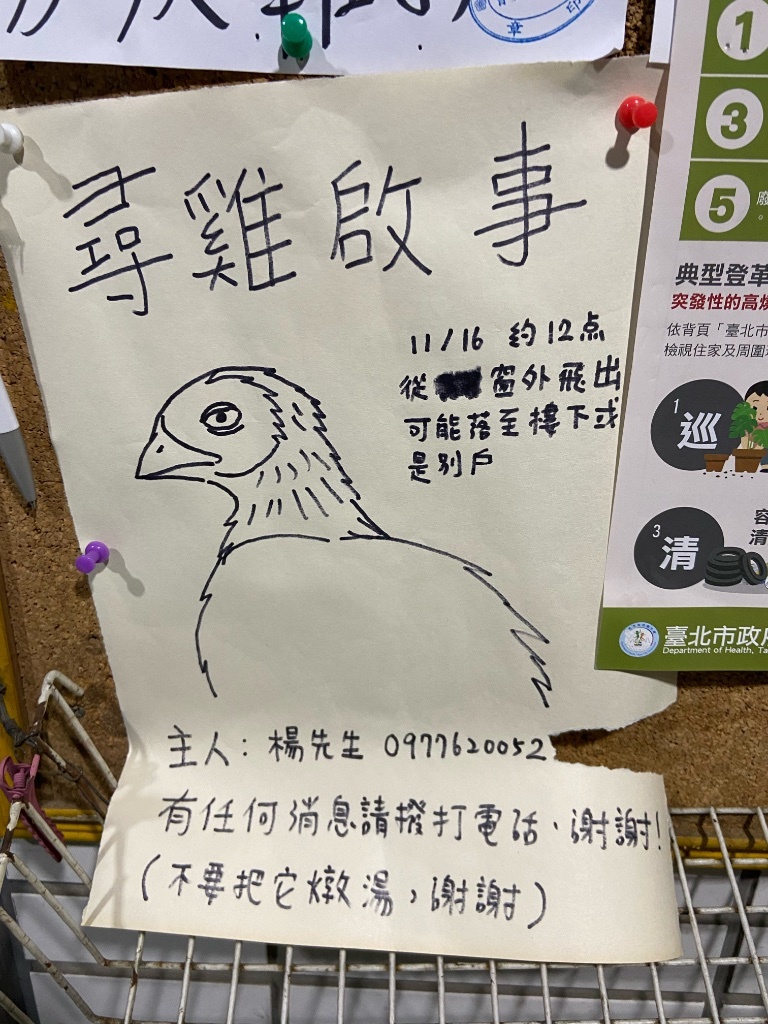 尋雞啟事
11/16 約12点
從 窗外飛出
可能落至樓下或
是別戶
主人：楊先生 0977620052
有任何消息請撥打電話，謝謝！
（不要把它燉湯，謝謝）
1
3
5
廢
典型登革
突發性的高燒
依背頁「臺北市
檢視住家及周圍
1
巡
3
清
容
清
臺北市政府
Department of Health, Ta